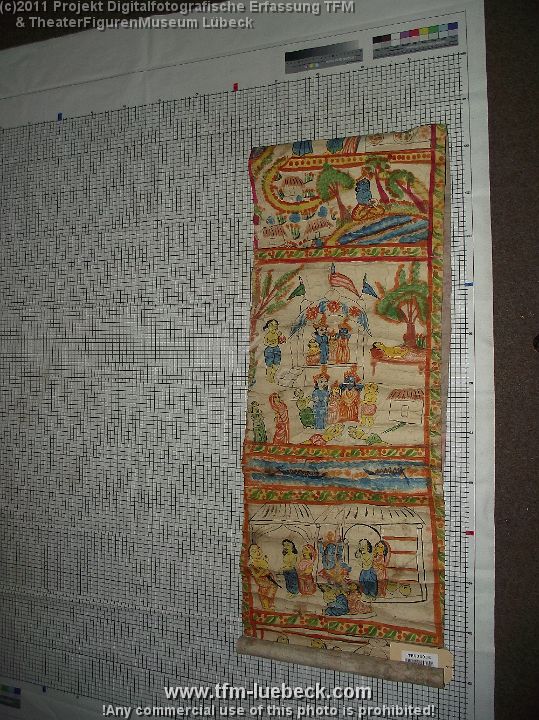 (c)2011 Projekt Digitalfotografische Erfassung TFM
& TheaterFigurenMuseum Lübeck
www.tfm-luebeck.com
!Any commercial use of this photo is prohibited!